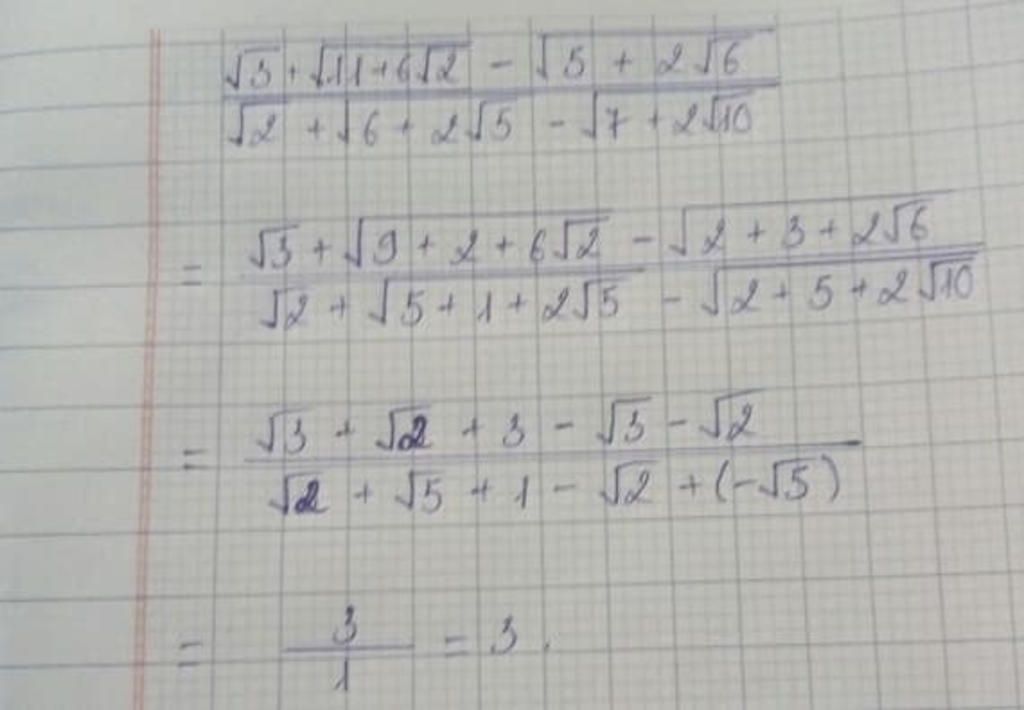 √3 + √(11+6√2) - √(5 + 2√6)
√2 + √(6 + 2√5) - √(7 + 2√10)
= √3 + √(9 + 2 + 6√2) - √(2 + 3 + 2√6)
√2 + √(5 + 1 + 2√5) - √(2 + 5 + 2√10)
= √3 + √2 + 3 - √3 - √2
√2 + √5 + 1 - √2 + (-√5)
= 3
1
= 3.